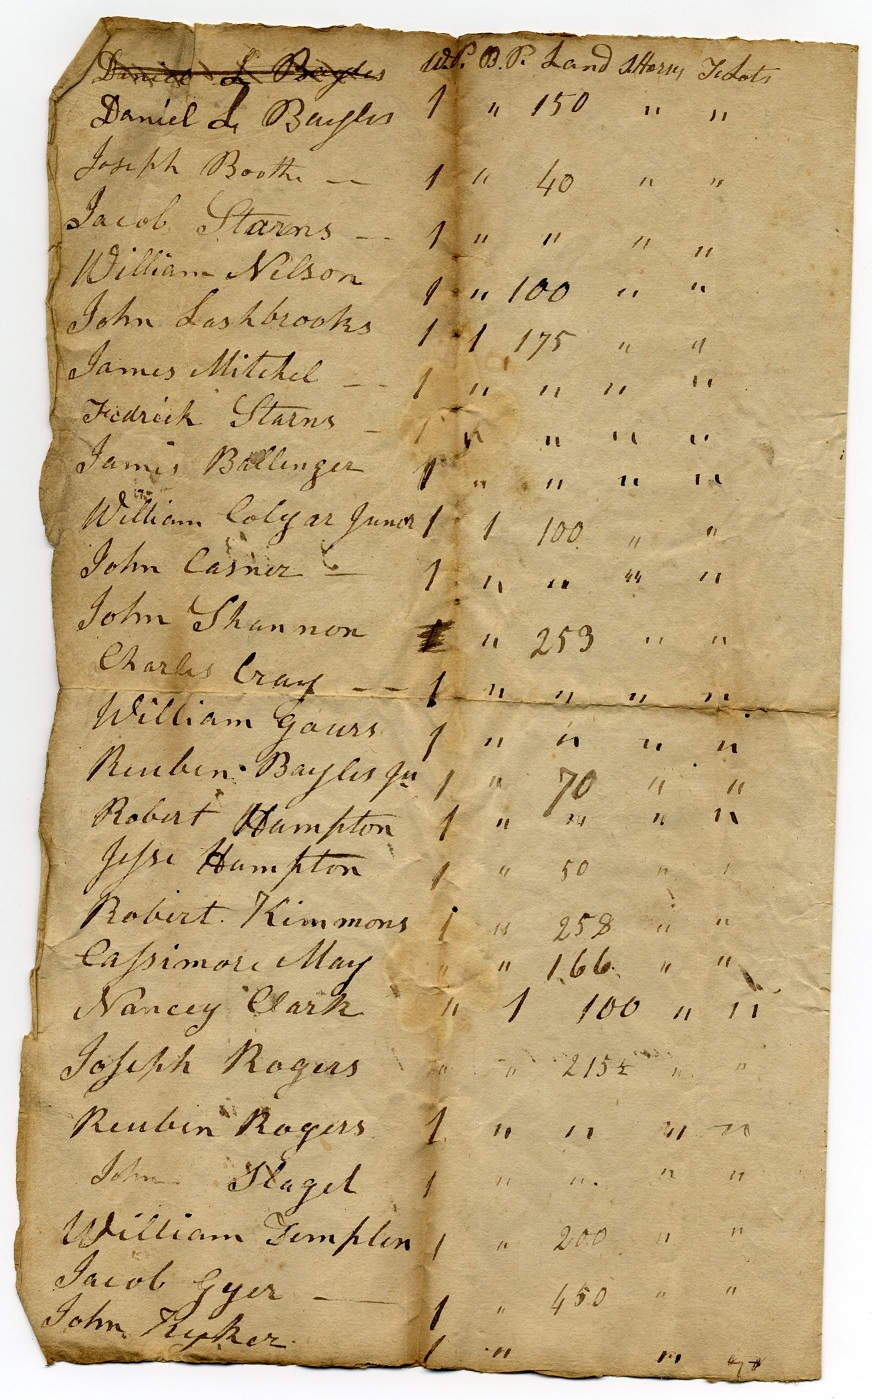 Daniel L Bayles W.P. B.P. Land S Horses T Lots
Daniel L Bayles 1 " 150 " "
Joseph Boothe — 1 " 40 " "
Jacob Starns — 1 " " " "
William Nelson 1 " 100 " "
John Lashbrooks 1 1 175 " "
James Mitchel — 1 " " " "
Fedrick Starns - 1 " " " "
James Ballenger 1 " " " "
William Colyar Junor 1 1 100 " "
John Casner — 1 " " " "
John Shannon 1 " 253 " "
Charles Cray — 1 " " " "
William Gours 1 " " " "
Reuben Bayles Ju 1 " 70 " "
Robert Hampton 1 " " " "
Jesse Hampton 1 " 50 " "
Robert Kimmons 1 " 258 " "
Cassimore May " " 166 " "
Nancey Clark " 1 100 " "
Joseph Rogers " " 215½ " "
Reubin Rogers 1 " " " "
John Flagel 1 " " " "
William Templin 1 " 200 " "
Jacob Gyer — 1 " 450 " "
John Ryker 1 " " "